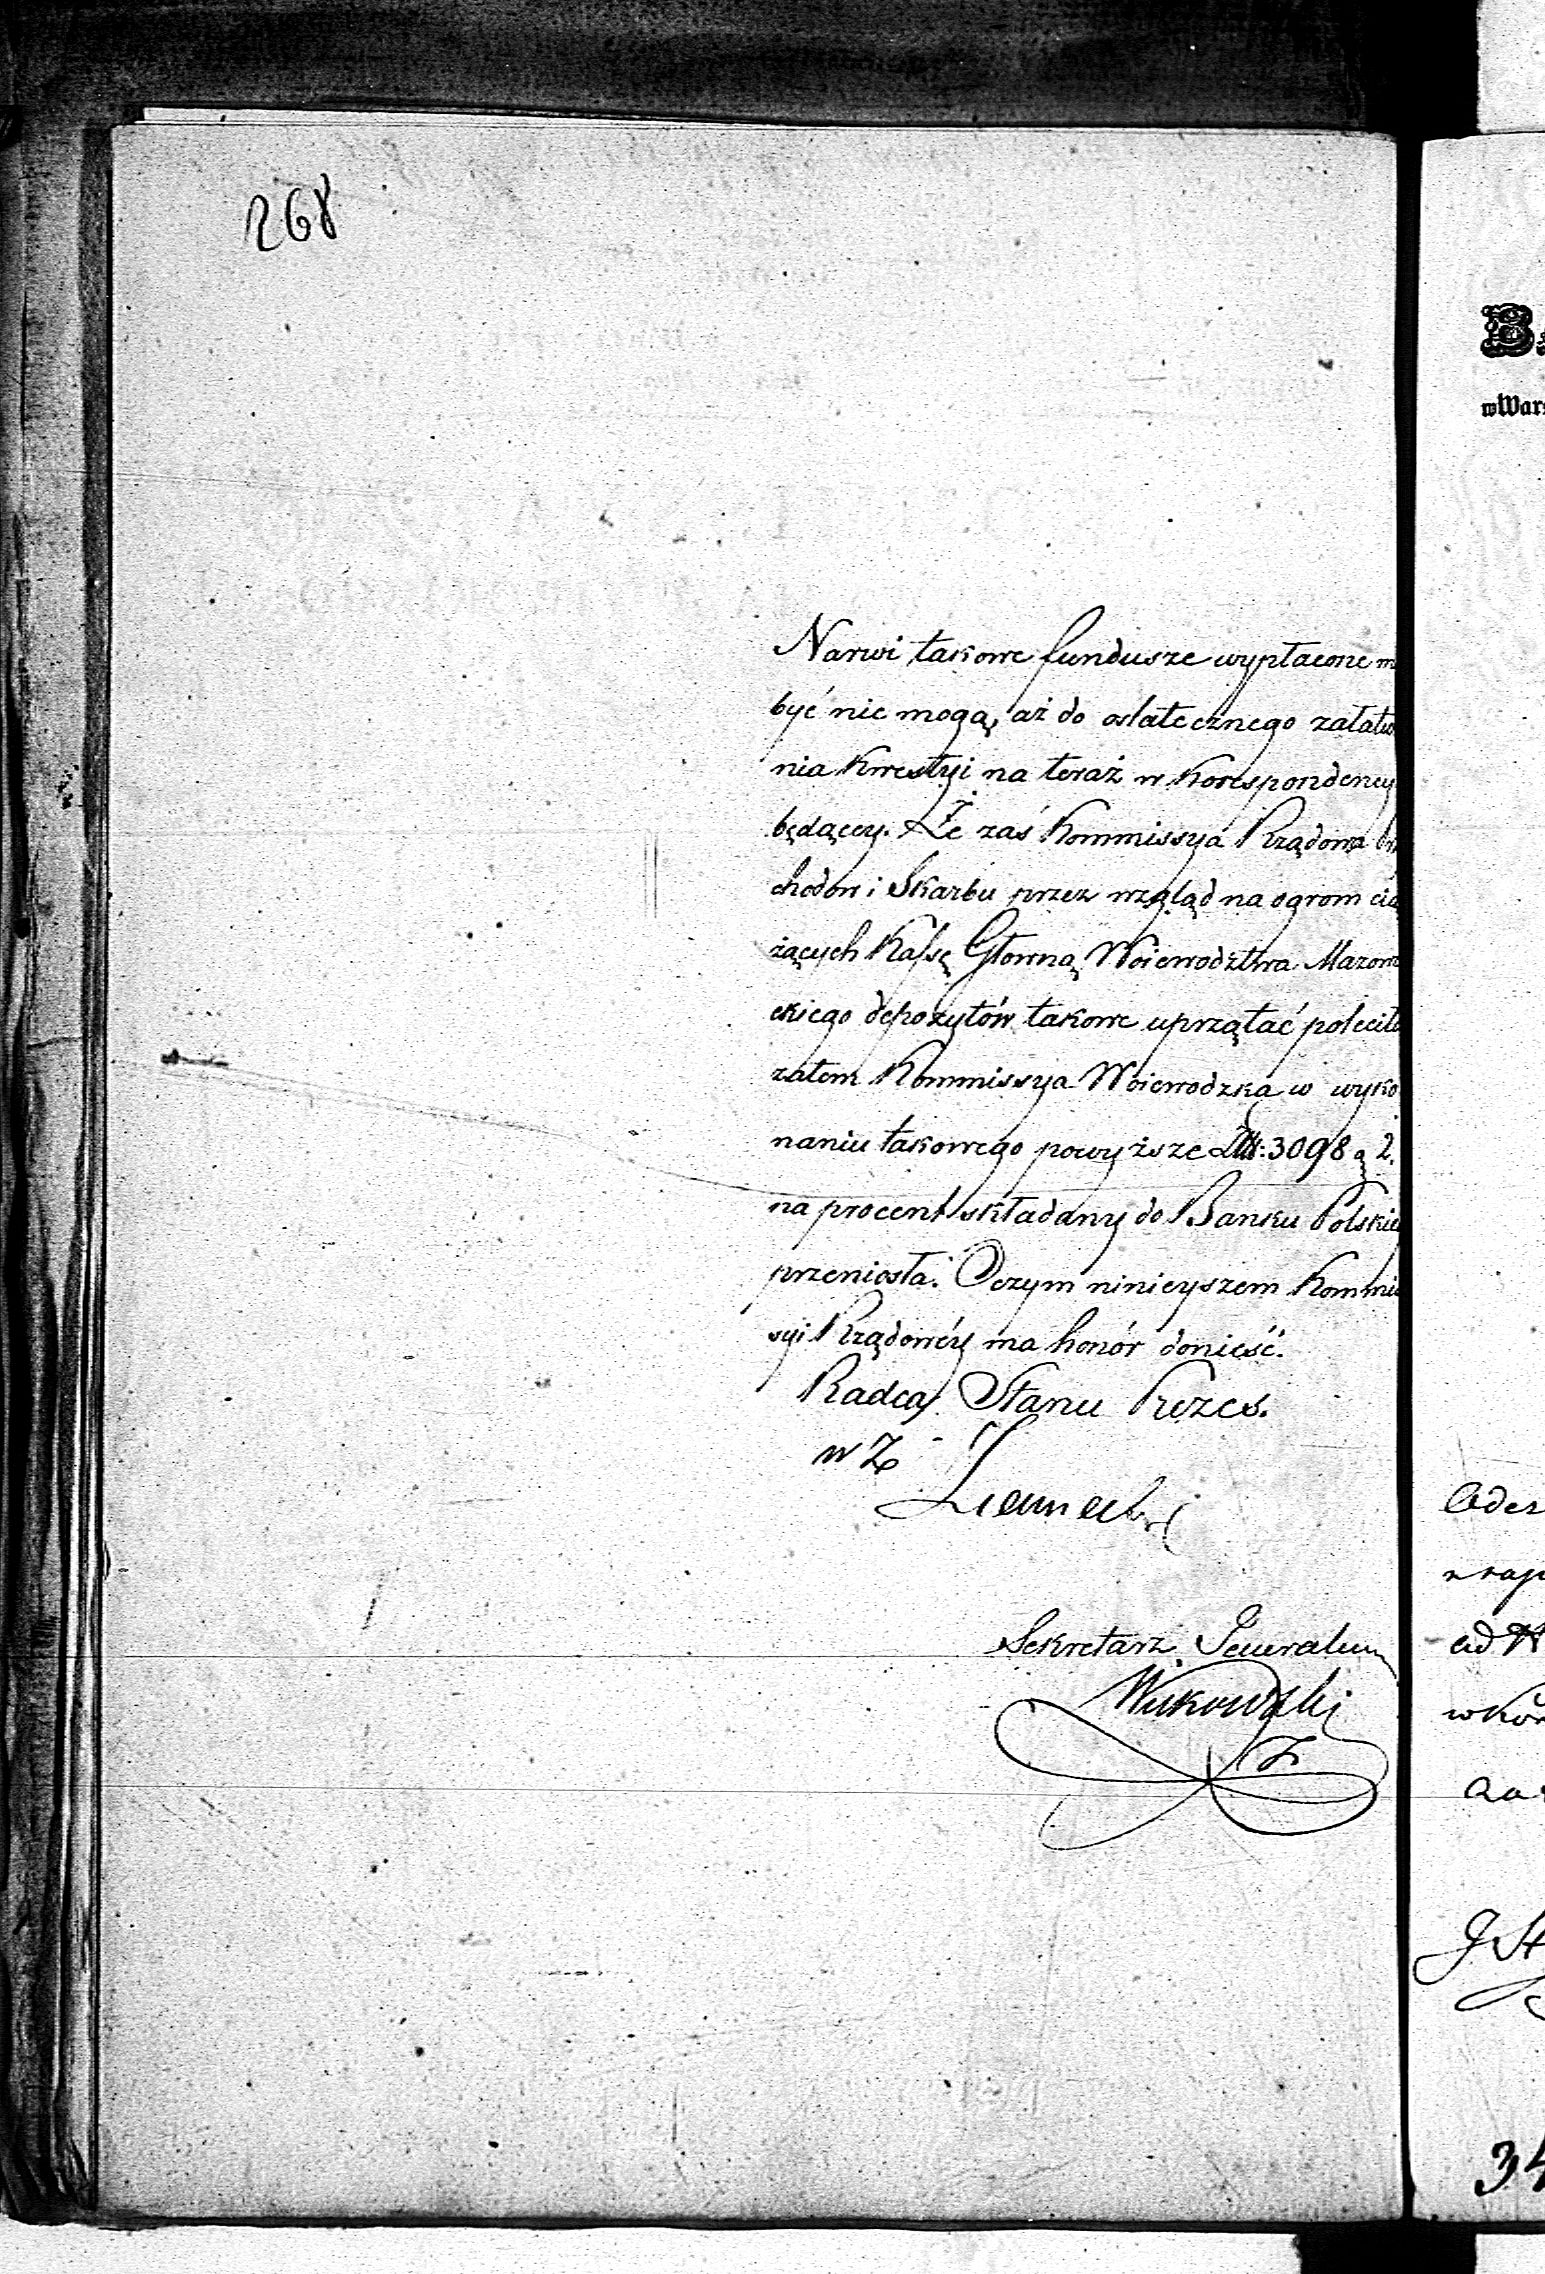 268
Narwi takowe fundusze wypłacone
być nie mogą, aż do ostatecznego załatw
nia kwestyi na teraz w korespondency
będącey. Że zaś Kommissya Rządowa
chodow i Skarbu przez wzgląd na ogrom cią
żących Kassę Głowną Woiewodztwa Mazow
ckiego depozytów takowe uprzątać poleciła
zatem Kommissya Woiewodzka w wyko
naniu takowego powyższe Zł: 3098 g 2.
na procent składany do Banku Polskie
przeniosła. O czym ninieyszem Kommis
syi Rządowéy ma honór donieść.
Radca Stanu Prezes.
w Z
Sekretarz Generalny
B
w Wars
ad N
w Kor
34